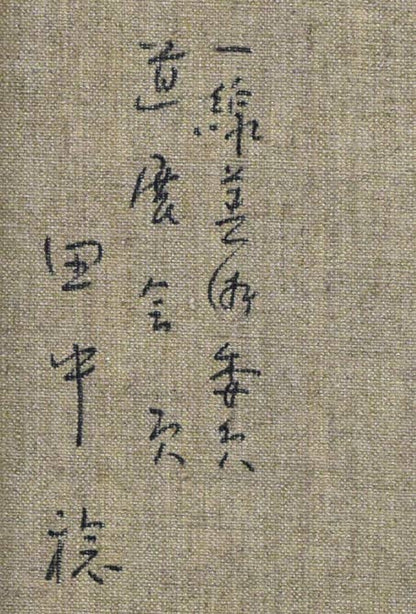 一線美術委員
道展会員
田中稔